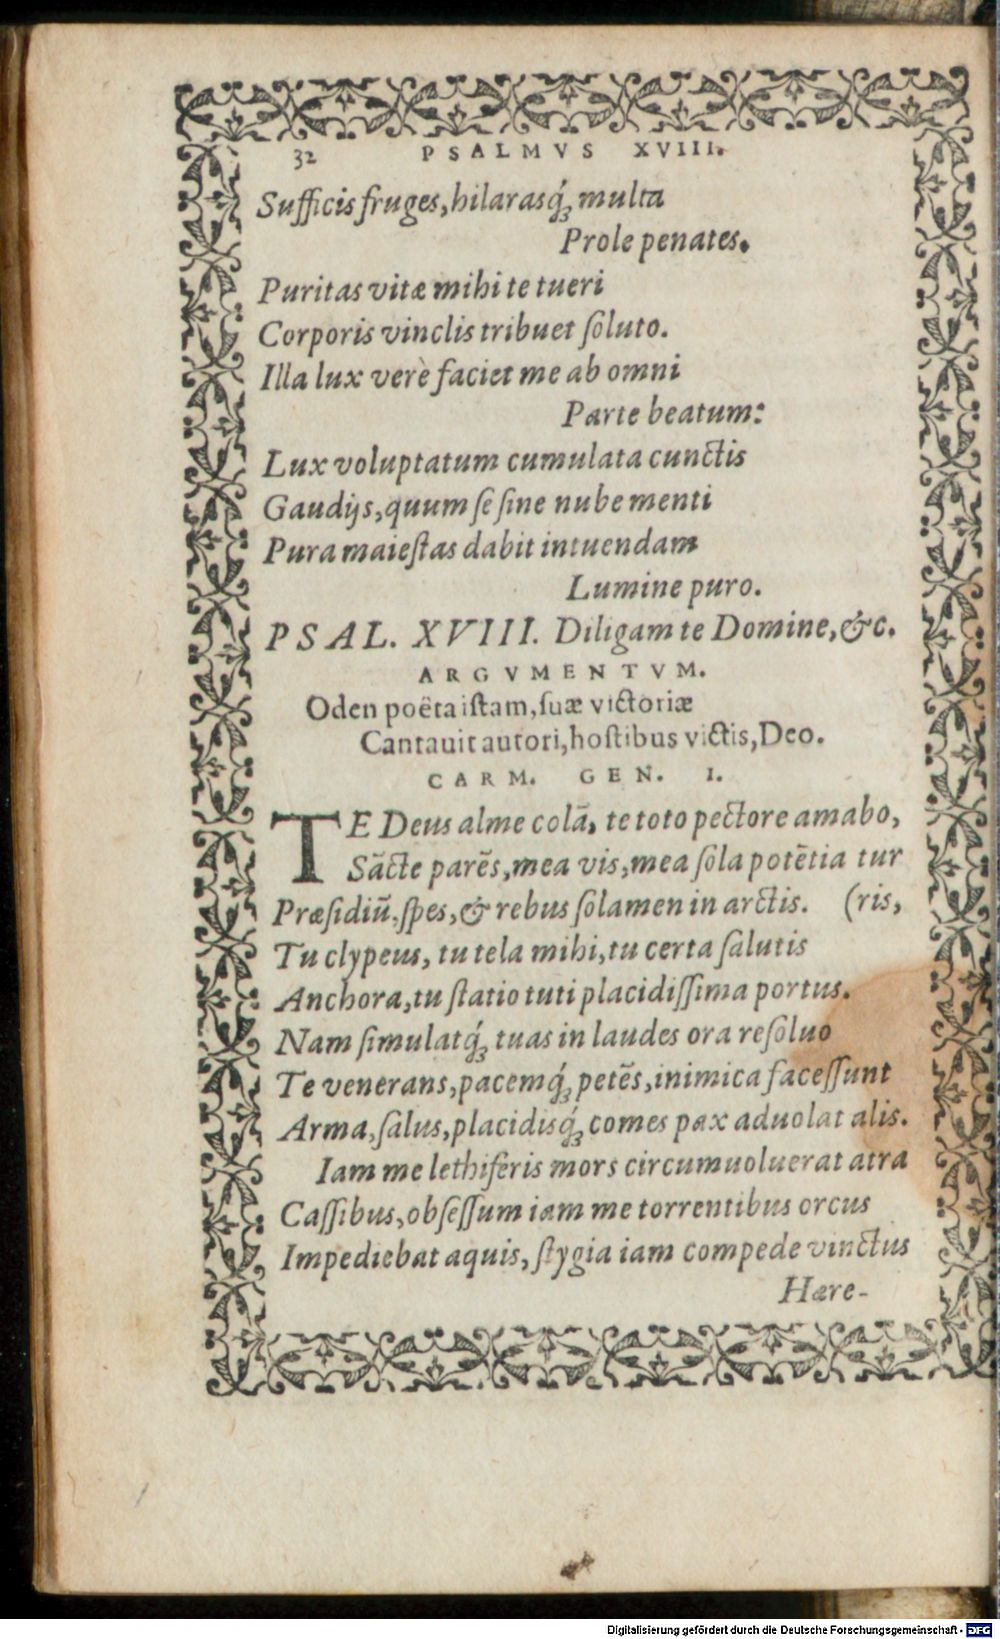 32 PSALMVS XVIII.
Sufficis fruges, hilarasq́ꝫ multa
Prole penates.
Puritas vitæ mihi te tueri
Corporis vinclis tribuet ſoluto.
Illa lux verè faciet me ab omni
Parte beatum:
Lux voluptatum cumulata cunctis
Gaudijs, quum ſe ſine nube menti
Pura maieſtas dabit intuendam
Lumine puro.
PSAL. XVIII. Diligam te Domine, &c.
ARGVMENTVM.
Oden poëta iſtam, ſuæ victoriæ
Cantauit autori, hoſtibus victis, Deo.
CARM. GEN. I.
TE Deus alme colā, te toto pectore amabo,
Sācte parēs, mea vis, mea ſola potētia tur
Præſidiū, ſpes, & rebus ſolamen in arctis. (ris,
Tu clypeus, tu tela mihi, tu certa ſalutis
Anchora, tu ſtatio tuti placidiſſima portus.
Nam ſimulatq́ꝫ tuas in laudes ora reſoluo
Te venerans, pacemq́ꝫ petēs, inimica faceſſunt
Arma, ſalus, placidisq́ꝫ comes pax aduolat alis.
Iam me lethiferis mors circumuoluerat atra
Caſſibus, obſeſſum iam me torrentibus orcus
Impediebat aquis, ſtygia iam compede vinctus
Hære-
Digitalisierung gefördert durch die Deutsche Forschungsgemeinschaft - DFG